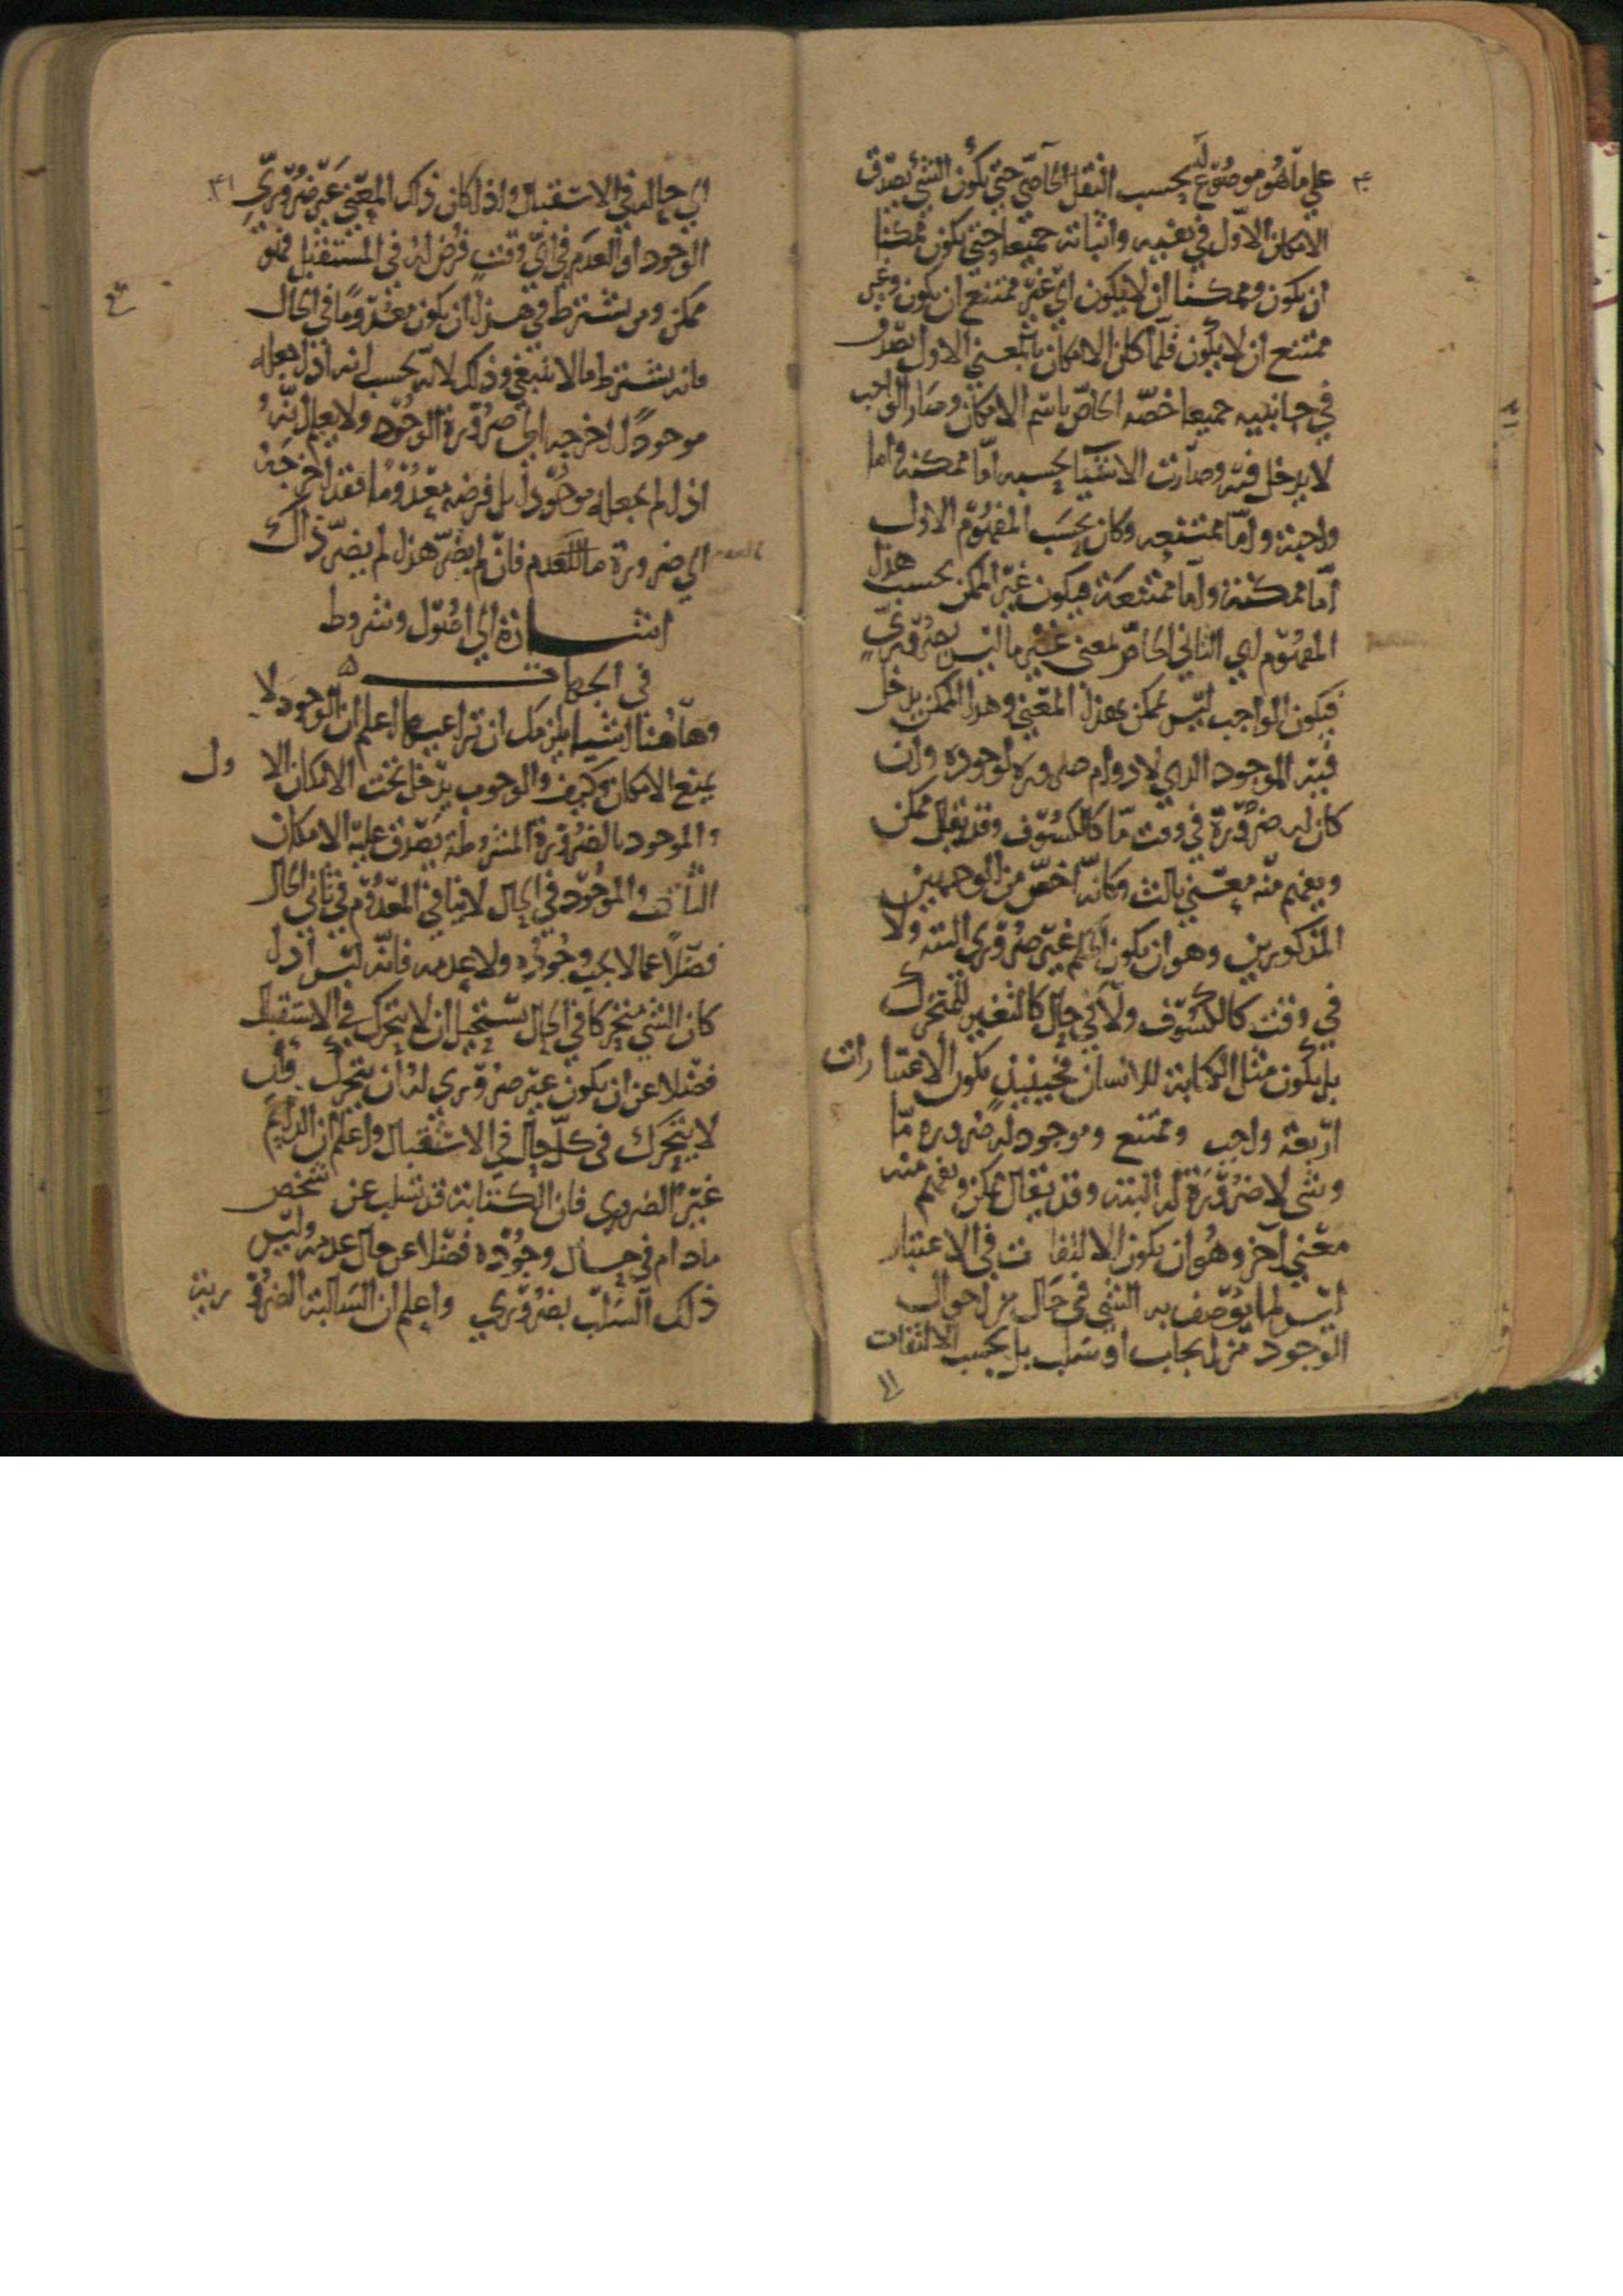 على ما هو موضوع له بحسب النقل الخاصي حتى يكون الشئ يصدق
الامكان الاول في نفيه واثباته جميعا حتى يكون ممكنا
ان يكون وممكنا ان لا يكون اي غير ممتنع ان يكون وغير
ممتنع ان لا يكون فلما كان الامكان بالمعنى الاول يصدق
في جانبيه جميعا خصه الخاص باسم الامكان وصار الواجب
لا يدخل فيه وصارت الاشيا بحسبه اما ممكنة واما
واجبة واما ممتنعه وكان بحسب المفهوم الاول
اما ممكنة واما ممتنعة فيكون غير الممكن بحسب هذا
المفهوم اي الثاني الخاص بمعنى غير ما ليس بضروري
فيكون الواجب ليس بممكن بهذا المعنى وهذا الممكن يدخل
فيه الموجود الذي لا دوام ضروره لوجوده وان
كان له ضرورة في وقت ما كالكسوف وقد يقال ممكن
ويفهم منه معنى ثالث وكانه اخص من الوجهين
المذكورين وهو ان يكون الحكم غير ضروري البته ولا
في وقت كالكسوف ولا في حال كالتغير للمتحرك
بل يكون مثل الكتابة للانسان فحينيذ يكون الاعتبارات
اربعة واجب وممتنع وموجود له ضروره ما
وشئ لا ضرورة له البته وقد يقال ممكن ويفهم منه
معنى آخر وهو ان يكون الالتفات في الاعتبار
ليس لما يوصف به الشئ في حال من احوال
الوجود من ايجاب او سلب بل بحسب الالتفات
الى حاله في الاستقبال واذا كان ذلك المعنى غير ضروري
الوجود او العدم في اي وقت فرض له في المستقبل فهو
ممكن ومن يشترط في هذا ان يكون معدوما في الحال
فانه يشترط ما لا ينبغي وذلك لانه يحسب انه اذا جعله
موجودا اخرجه الى ضرورة الوجود ولا يعلم انه
اذا لم يجعله موجودا بل فرضه معدوما فقد اخرجه
الى ضرورة ما للعدم فان لم يضر هذا لم يضر ذاك
اشارة الى اصول وشروط
في الجهات
وهاهنا اشيا يلزمك ان تراعيها اعلم ان الوجود لا
يمنع الامكان وكيف والوجوب يدخل تحت الامكان الاول
والموجود بالضرورة المشروطة يصدق عليه الامكان
الثاني والموجود في الحال لا ينافي المعدوم في ثاني الحال
فضلا عما لا يجب وجوده ولا عدمه فانه ليس اذا
كان الشئ متحركا في الحال يستحيل ان لا يتحرك في الاستقبال
فضلا عن ان يكون غير ضروري له ان يتحرك وان
لا يتحرك في كل حال في الاستقبال واعلم ان الدايم
غير الضروري فان الكتابة قد تسلب عن شخص
مادام في حال وجوده فضلا عن حال عدمه وليس
ذلك السلب بضروري واعلم ان السالبة الضرورية